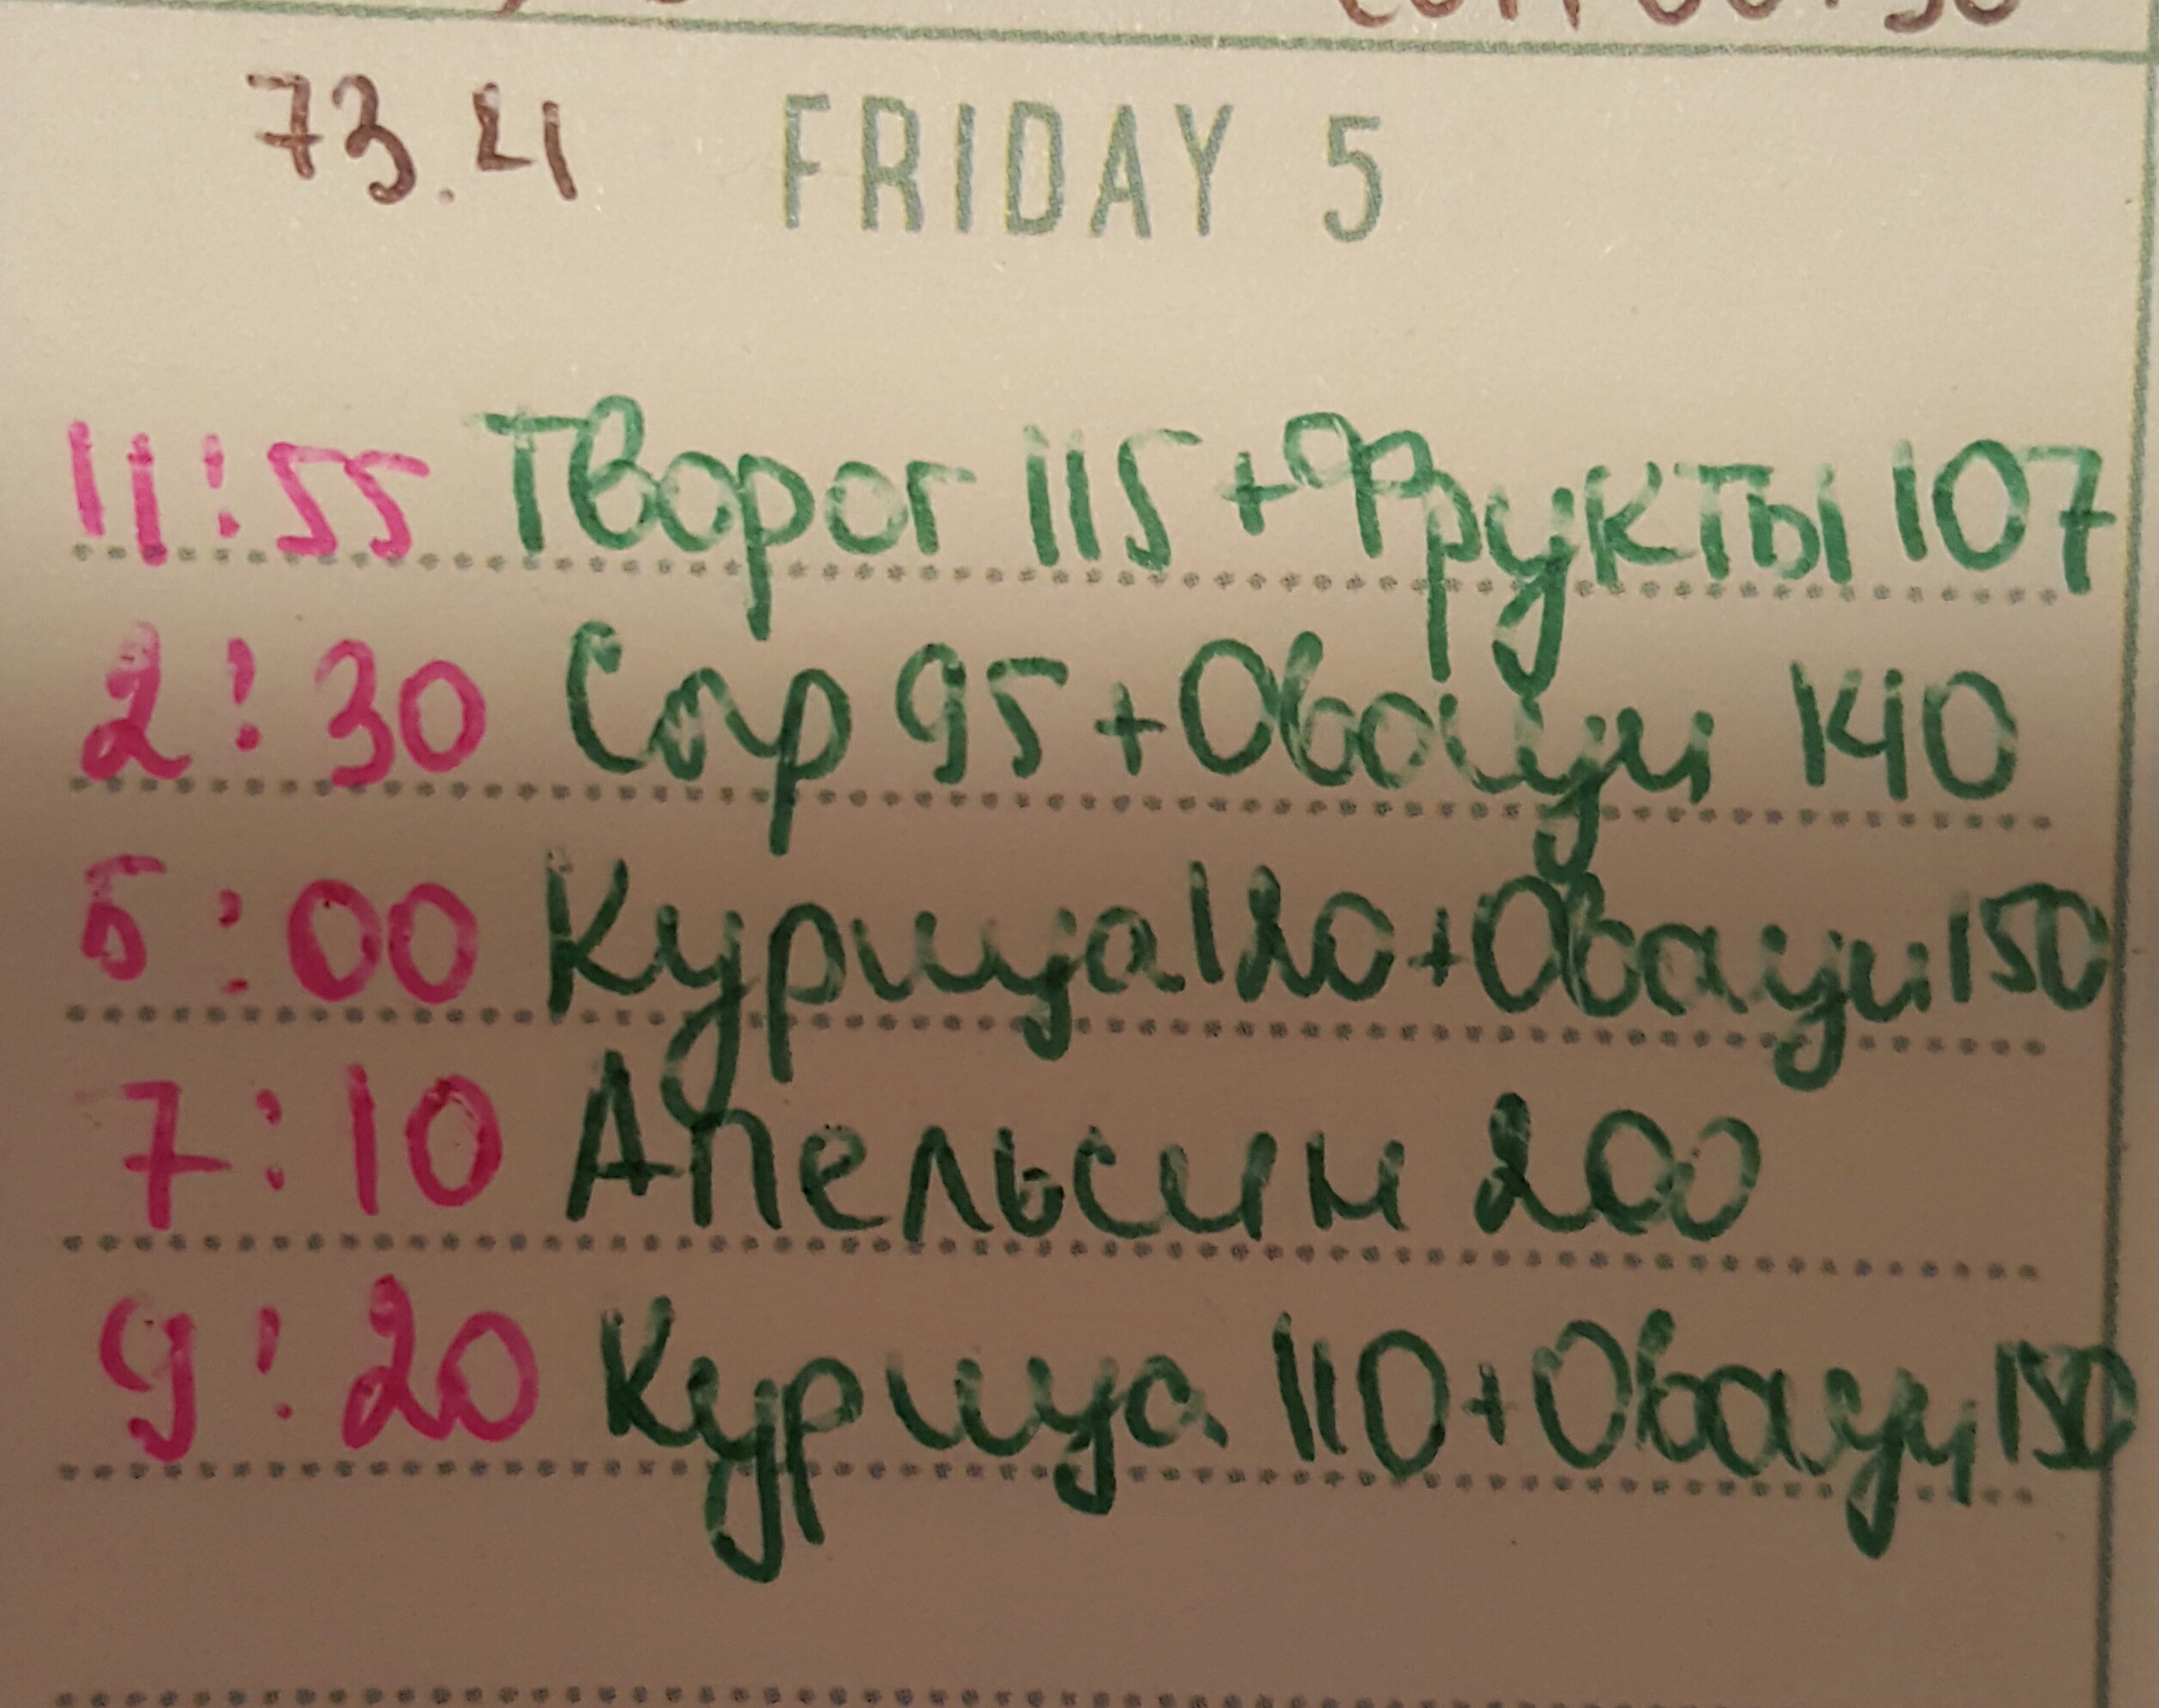 73.4 FRIDAY 5
11:55 Творог 115+Фрукты 107
2:30 Сыр 95+Овощи 140
5:00 Курица 120+Овощи 150
7:10 Апельсин 200
9:20 Курица 110+Овощи 150